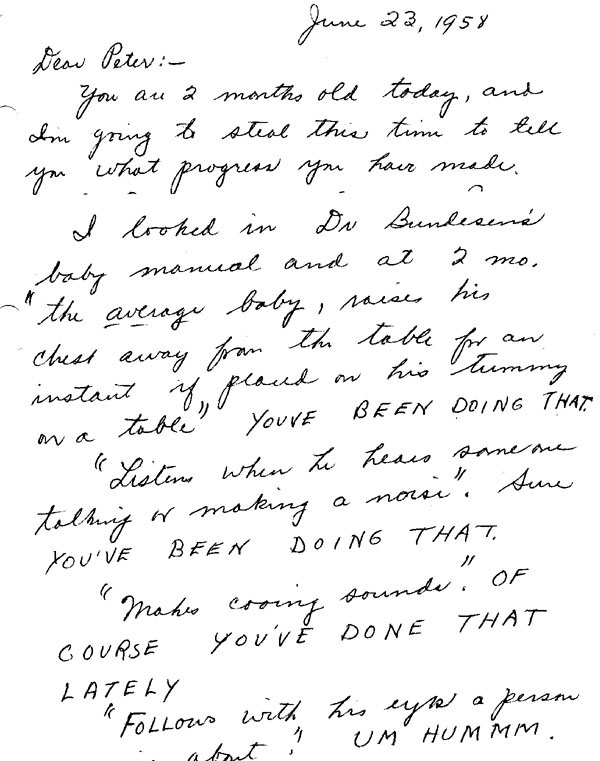 June 23, 1958
Dear Peter:—
You are 2 months old today, and
I'm going to steal this time to tell
you what progress you have made.
I looked in Dr Bundesen's
baby manual and at 2 mo.
"the average baby, raises his
chest away from the table for an
instant if placed on his tummy
on a table" YOUVE BEEN DOING THAT.
"Listens when he hears someone
talking or making a noise". Sure
YOU'VE BEEN DOING THAT.
"Makes cooing sounds". OF
COURSE YOU'VE DONE THAT
LATELY
"Follows with his eyes a person
about". UM HUMMM.